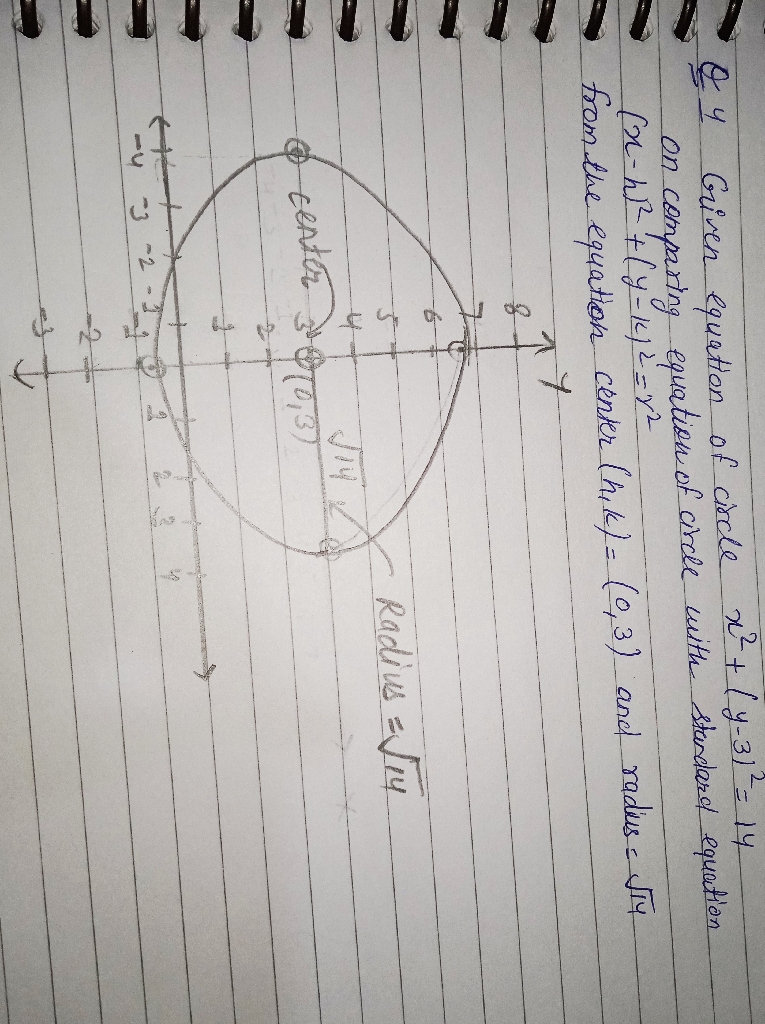 Q 4 Given equation of circle x² + (y-3)² = 14
on comparing equation of circle with standard equation
(x-h)² + (y-k)² = r²
from the equation center (h,k) = (0,3) and radius = √14
Y
8
7
6
5
4
center 3 (0,3)
√14
Radius = √14
2
1
-4 -3 -2 -1 1 2 3 4
-1
-2
-3